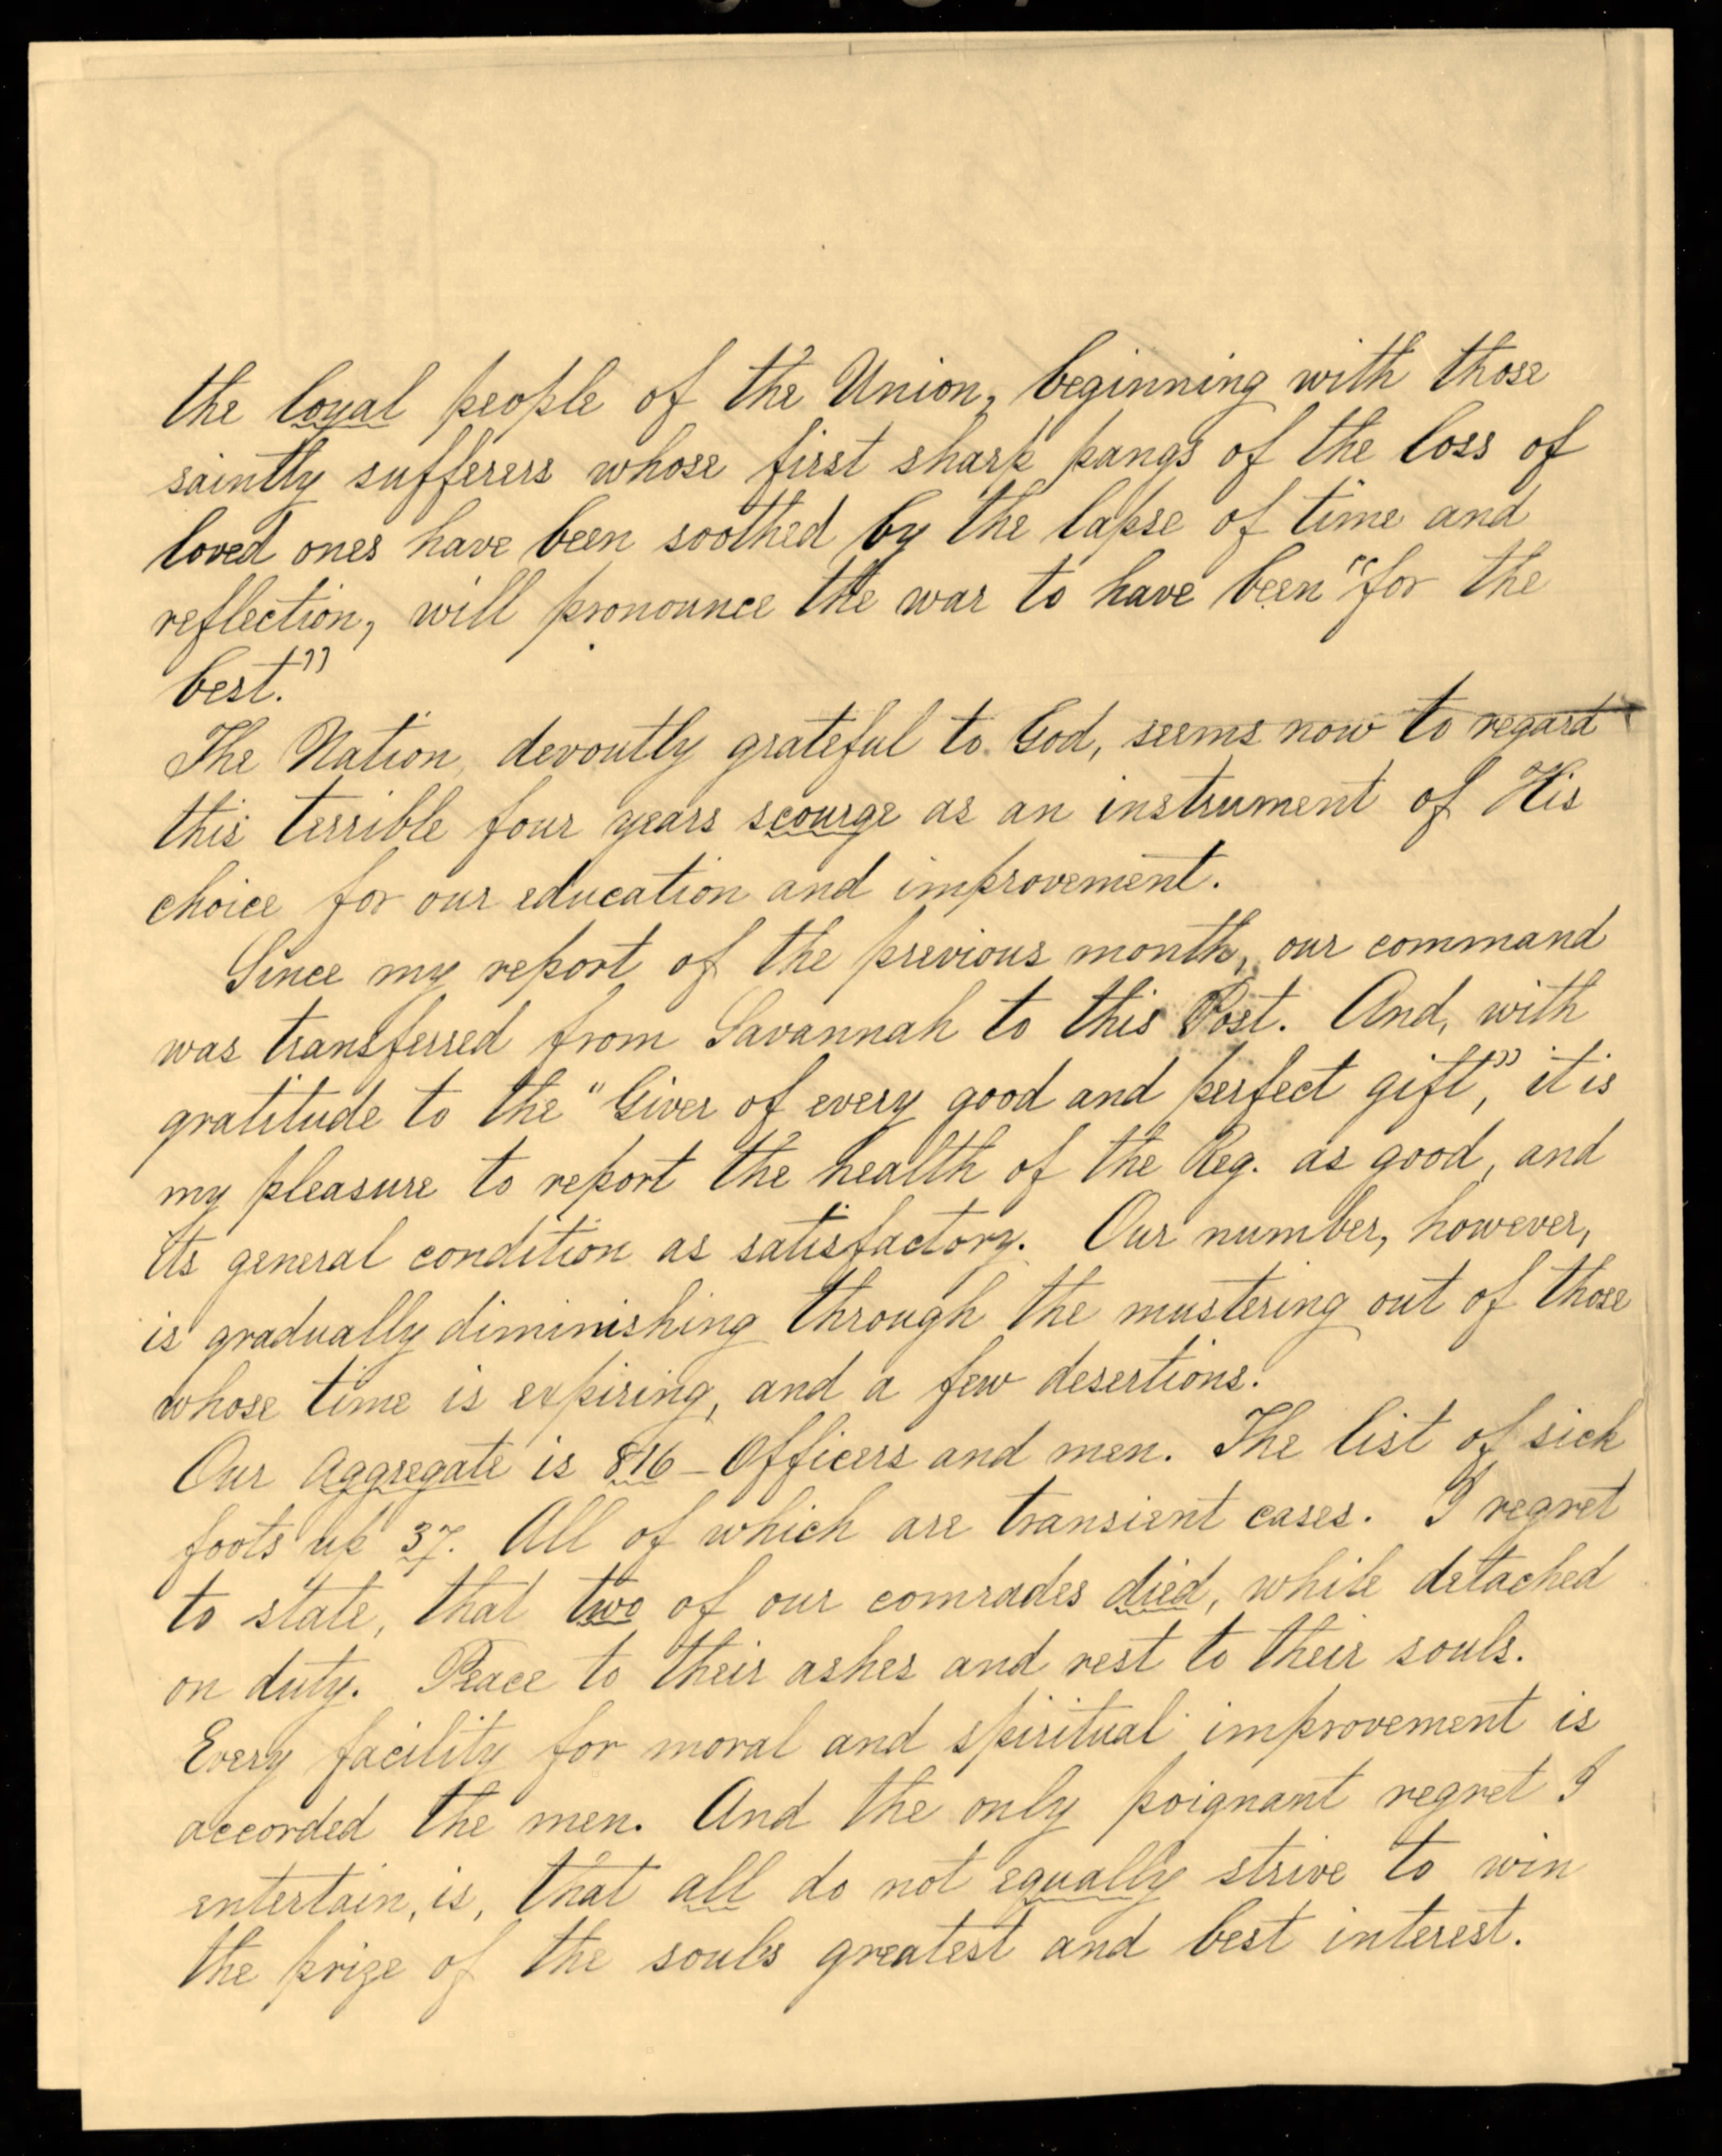 the loyal people of the Union, beginning with those
saintly sufferers whose first sharp pangs of the loss of
loved ones have been soothed by the lapse of time and
reflection, will pronounce the war to have been "for the
best."
The Nation, devoutly grateful to God, seems now to regard
this terrible four years scourge as an instrument of His
choice for our education and improvement.
Since my report of the previous month, our command
was transferred from Savannah to this Post. And, with
gratitude to the "Giver of every good and perfect gift", it is
my pleasure to report the health of the Reg. as good, and
its general condition as satisfactory. Our number, however,
is gradually diminishing through the mustering out of those
whose time is expiring, and a few desertions.
Our Aggregate is 816 - Officers and men. The list of sick
foots up 37. All of which are transient cases. I regret
to state, that two of our comrades died, while detached
on duty. Peace to their ashes and rest to their souls.
Every facility for moral and spiritual improvement is
accorded the men. And the only poignant regret I
entertain, is, that all do not equally strive to win
the prize of the souls greatest and best interest.